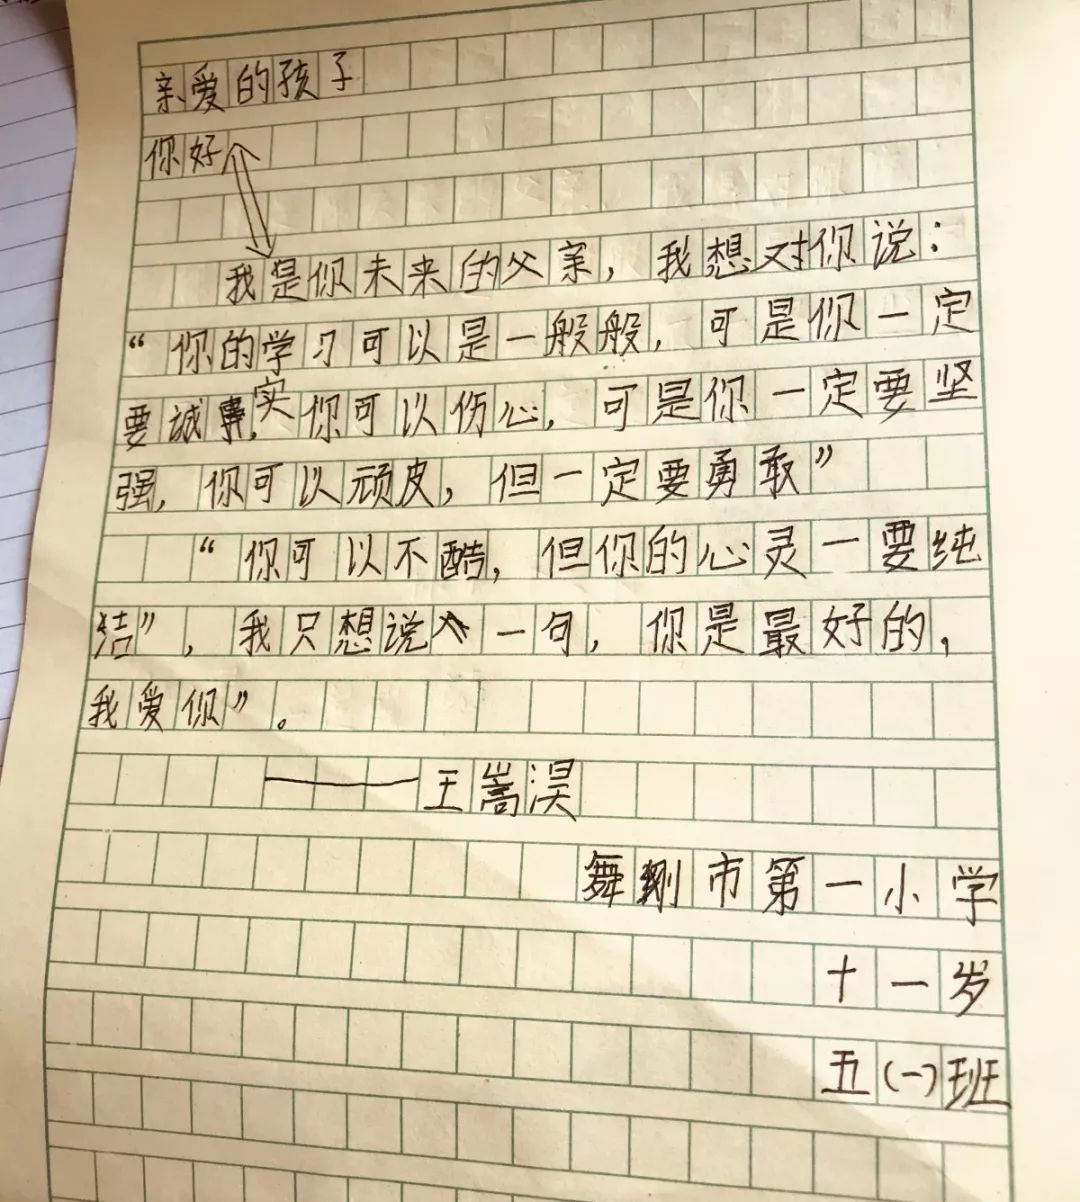 亲爱的孩子
你好
我是你未来的父亲，我想对你说：
“你的学习可以是一般般，可是你一定
要诚实，你可以伤心，可是你一定要坚
强，你可以顽皮，但一定要勇敢”
“你可以不酷，但你的心灵一要纯
洁”，我只想说一句，你是最好的，
我爱你”。
——王嵩淏
舞钢市第一小学
十一岁
五(一)班